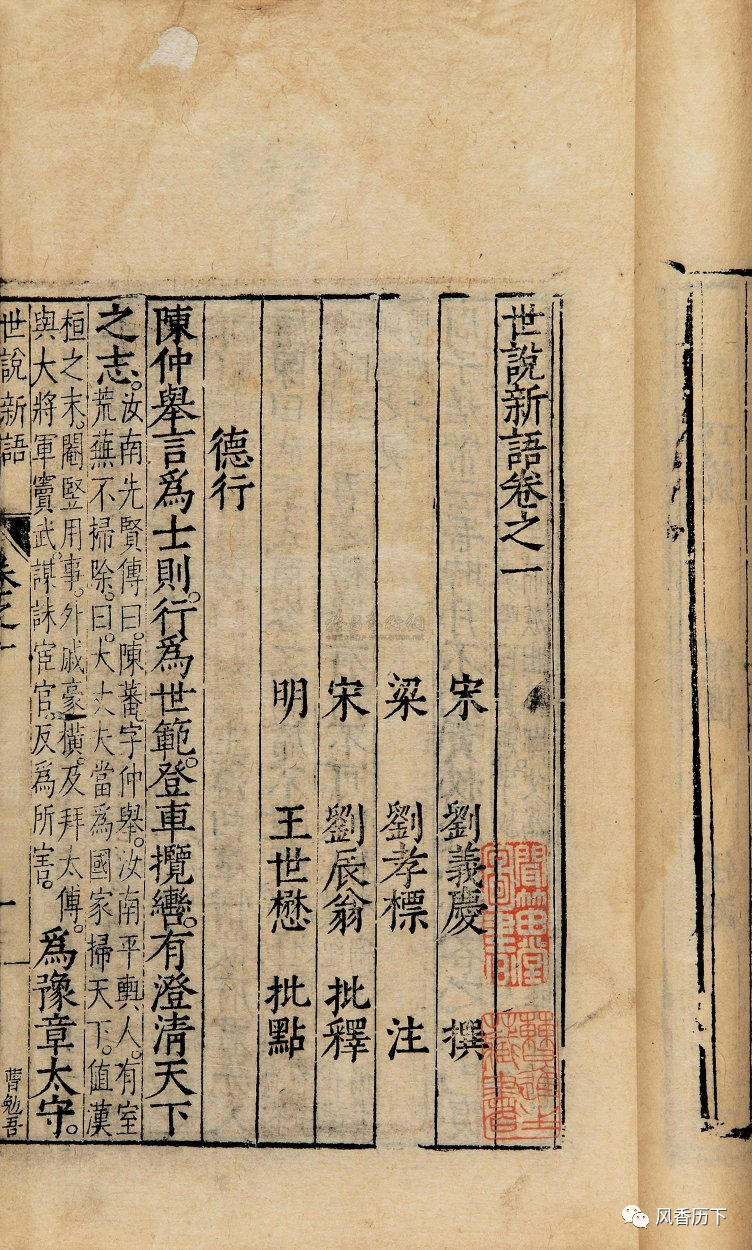 世說新語卷之一
宋 劉義慶 撰
梁 劉孝標 注
宋 劉辰翁 批釋
明 王世懋 批點
德行
陳仲舉言爲士則。行爲世範。登車攬轡。有澄清天下
之志。
汝南先賢傳曰。陳蕃字仲舉。汝南平輿人。有室
荒蕪不掃除。曰。大丈夫當爲國家掃天下。值漢
桓之末。閹豎用事。外戚豪橫。及拜太傅。
與大將軍竇武。謀誅宦官。反爲所害。
爲豫章太守。
世說新語 卷之一 一 曹勉吾
风香历下